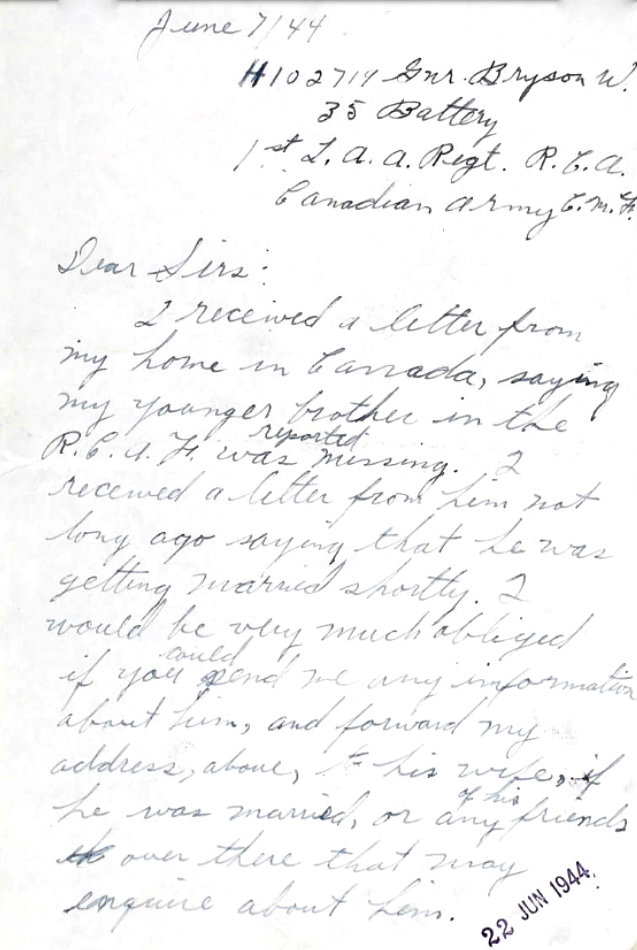 June 7/44
H102719 Gnr. Bryson W.
35 Battery
1st L. A. A. Regt. R. C. A.
Canadian Army C. M. F.
Dear Sirs:
I received a letter from
my home in Canada, saying
my younger brother in the
R. C. A. F. was reported missing. I
received a letter from him not
long ago saying that he was
getting married shortly. I
would be very much obliged
if you could send me any information
about him, and forward my
address, above, to his wife, if
he was married, or any of his friends
over there that may
enquire about him.
22 JUN 1944